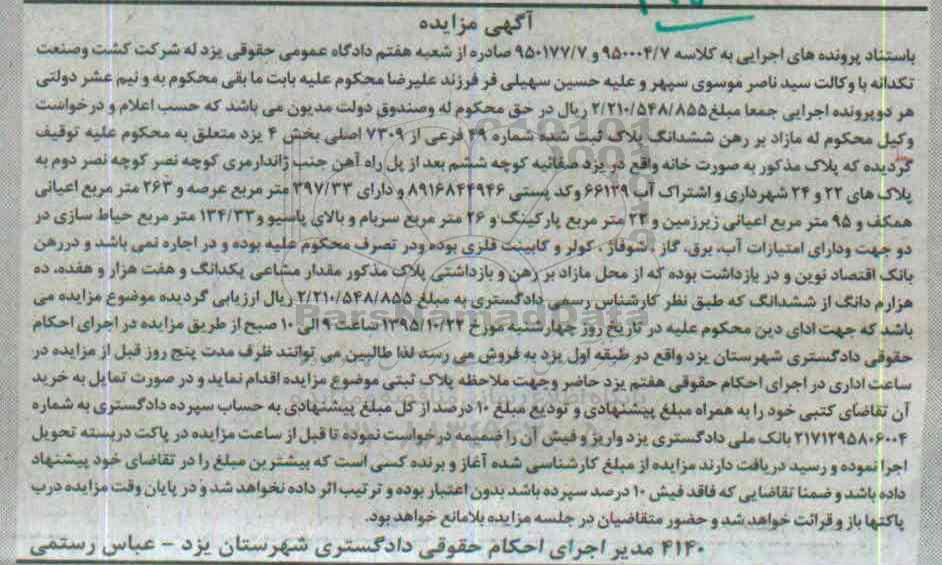 آگهی مزایده
باستناد پرونده های اجرایی به کلاسه ۹۵۰۰۰۴/۷ و ۹۵۰۱۷۷/۷ صادره از شعبه هفتم دادگاه عمومی حقوقی یزد له شرکت کشت وصنعت
تکدانه با وکالت سید ناصر موسوی سپهر و علیه حسین سهیلی فر فرزند علیرضا محکوم علیه بابت ما بقی محکوم به و نیم عشر دولتی
هر دو پرونده اجرایی جمعا مبلغ ۲/۲۱۰/۵۴۸/۸۵۵ ریال در حق محکوم له وصندوق دولت مدیون می باشد که حسب اعلام و درخواست
وکیل محکوم له مازاد بر رهن ششدانگ پلاک ثبت شده شماره ۴۹ فرعی از ۷۳۰۹ اصلی بخش ۴ یزد متعلق به محکوم علیه توقیف
گردیده که پلاک مذکور به صورت خانه واقع در یزد صفائیه کوچه ششم بعد از پل راه آهن جنب ژاندارمری کوچه نصر کوچه نصر دوم به
پلاک های ۲۲ و ۲۴ شهرداری و اشتراک آب ۶۶۱۲۹ وکد پستی ۸۹۱۶۸۴۴۹۴۶ و دارای ۳۹۷/۳۳ متر مربع عرصه و ۲۶۳ متر مربع اعیانی
همکف و ۹۵ متر مربع اعیانی زیرزمین و ۲۳ متر مربع پارکینگ و ۲۶ متر مربع سربام و بالای پاسیو و ۱۳۴/۳۳ متر مربع حیاط سازی در
دو جهت ودارای امتیازات آب، برق، گاز ، شوفاژ ، کولر و کابینت فلزی بوده ودر تصرف محکوم علیه بوده و در اجاره نمی باشد و دررهن
بانک اقتصاد نوین و در بازداشت بوده که از محل مازاد بر رهن و بازداشتی پلاک مذکور مقدار مشاعی یکدانگ و هفت هزار و هفده، ده
هزارم دانگ از ششدانگ که طبق نظر کارشناس رسمی دادگستری به مبلغ ۲/۲۱۰/۵۴۸/۸۵۵ ریال ارزیابی گردیده موضوع مزایده می
باشد که جهت ادای دین محکوم علیه در تاریخ روز چهارشنبه مورخ ۱۳۹۵/۱۰/۲۲ ساعت ۹ الی ۱۰ صبح از طریق مزایده در اجرای احکام
حقوقی دادگستری شهرستان یزد واقع در طبقه اول یزد به فروش می رسد لذا طالبین می توانند ظرف مدت پنج روز قبل از مزایده در
ساعت اداری در اجرای احکام حقوقی هفتم یزد حاضر وجهت ملاحظه پلاک ثبتی موضوع مزایده اقدام نماید و در صورت تمایل به خرید
آن تقاضای کتبی خود را به همراه مبلغ پیشنهادی و تودیع مبلغ ۱۰ درصد از کل مبلغ پیشنهادی به حساب سپرده دادگستری به شماره
۲۱۷۱۲۹۵۸۰۶۰۰۴ بانک ملی دادگستری یزد واریز و فیش آن را ضمیمه درخواست نموده تا قبل از ساعت مزایده در پاکت دربسته تحویل
اجرا نموده و رسید دریافت دارند مزایده از مبلغ کارشناسی شده آغاز و برنده کسی است که بیشترین مبلغ را در تقاضای خود پیشنهاد
داده باشد و ضمنا تقاضایی که فاقد فیش ۱۰ درصد سپرده باشد بدون اعتبار بوده و ترتیب اثر داده نخواهد شد و در پایان وقت مزایده درب
پاکتها باز و قرائت خواهد شد و حضور متقاضیان در جلسه مزایده بلامانع خواهد بود.
۴۱۴۰ مدیر اجرای احکام حقوقی دادگستری شهرستان یزد – عباس رستمی
ParsNamadData